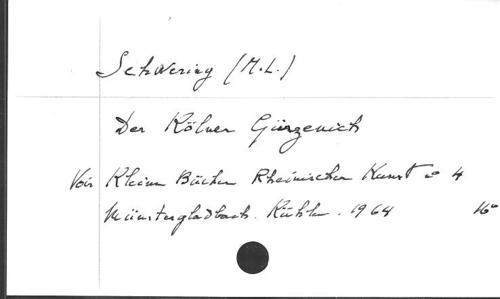 Schwering (M.L.)
Der Kölner Gürzenich
Voir Kleine Bücher Rheinischer Kunst n° 4
Münstergladbach. Kühlen. 1964 16°